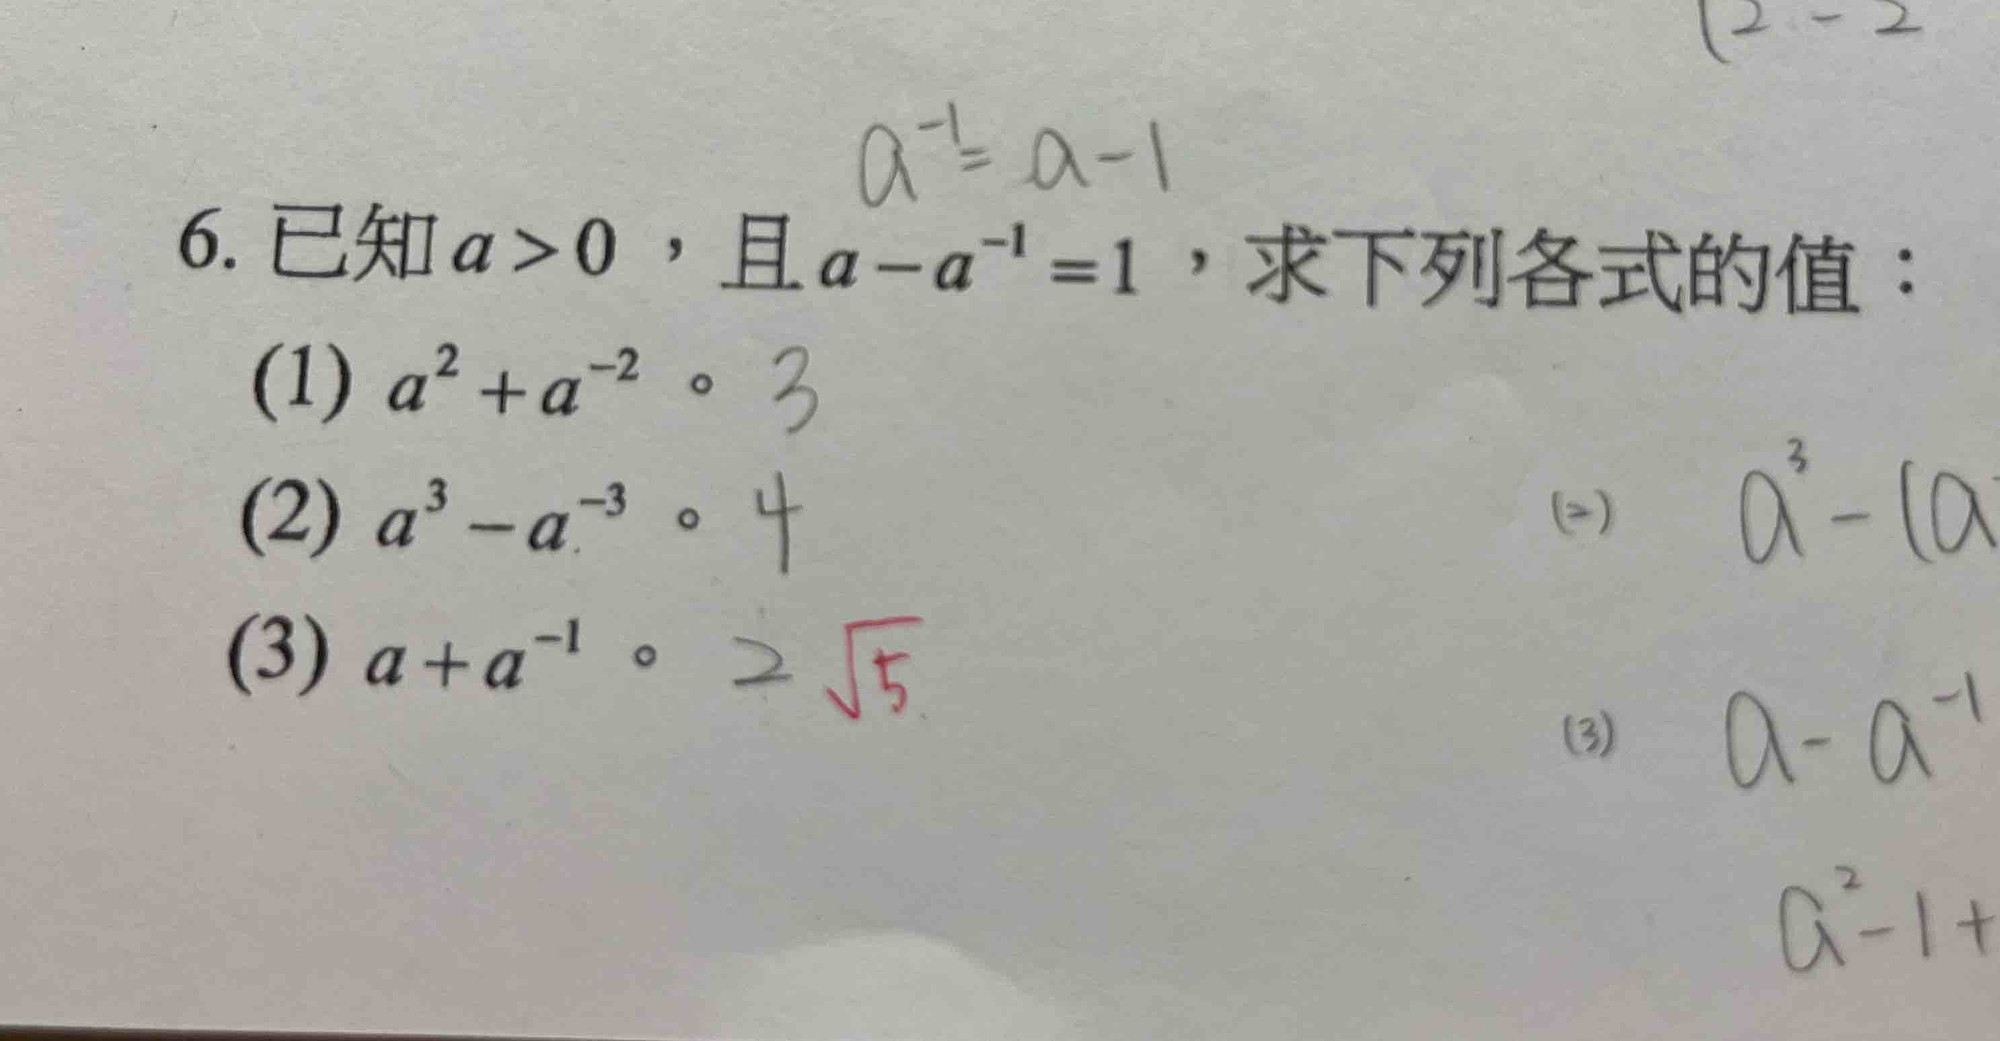 (2-2
a⁻¹= a-1
6. 已知a>0，且a-a⁻¹=1，求下列各式的值：
(1) a²+a⁻²。3
(2) a³-a⁻³。4
(2) a³-(a
(3) a+a⁻¹。2 √5
(3) a-a⁻¹
a²-1+